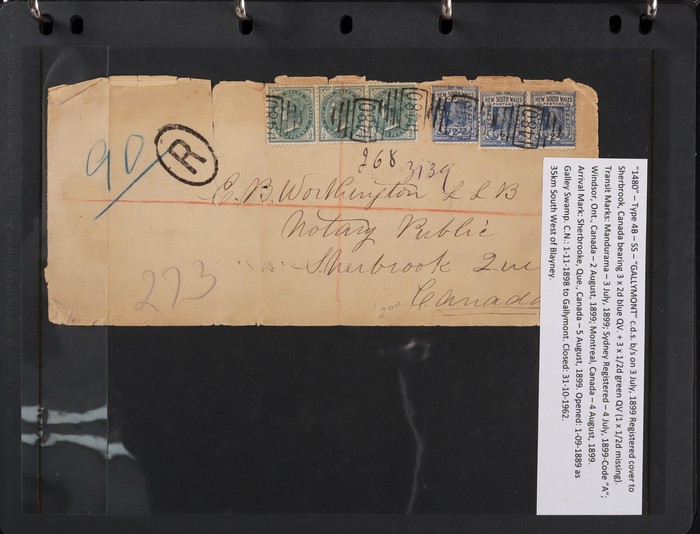 90
R
268
3139
E. B. Worthington L L B
Notary Public
Sherbrook Que
Canada
273
200
NEW SOUTH WALES
NEW SOUTH WALES
NEW SOUTH WALES
POSTAGE
POSTAGE
"1480" – Type 4B – SS – "GALLYMONT" c.d.s. b/s on 3 July, 1899 Registered cover to
Sherbrook, Canada bearing 3 x 2d blue QV. + 3 x 1/2d green QV (1 x 1/2d missing).
Transit Marks: Mandurama – 3 July, 1899; Sydney Registered – 4 July, 1899-Code "A";
Windsor, Ont., Canada – 2 August, 1899; Montreal, Canada – 4 August, 1899.
Arrival Mark: Sherbrooke, Que., Canada – 5 August, 1899. Opened: 1-09-1889 as
Galley Swamp. C.N.: 1-11-1898 to Gallymont. Closed: 31-10-1962.
35km South West of Blayney.